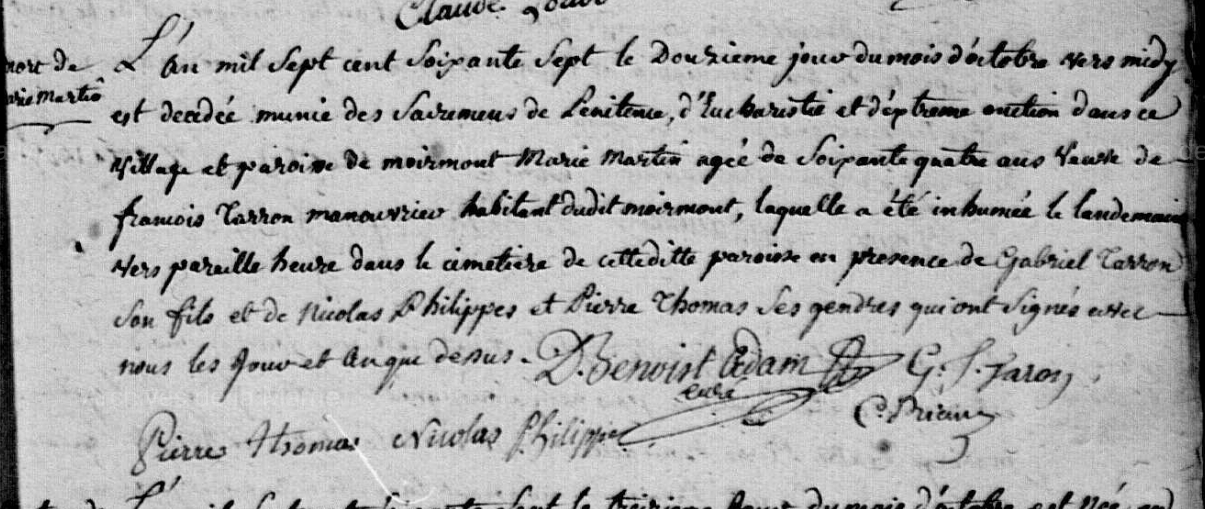 Claude
mort de
Marie Martin
L'an mil Sept cent Soixante Sept le Douzieme jour du mois d'octobre vers midy
est decedée munie des Sacremens de Penitence, d'Eucharistie et d'extreme onction dans ce
village et paroisse de moirmont Marie Martin agée de Soixante quatre ans veuve de
francois Tarron manouvrier habitant dudit moirmont, laquelle a été inhumée le landemain
vers pareille heure dans le cimetiere de cetteditte paroisse en presence de Gabriel Tarron
son fils et de Nicolas Philippes et Pierre Thomas Ses gendres qui ont Signés avec
nous les Jour et An que dessus. D. Benoist Adam G. J. Taron
curé
Pierre Thomas Nicolas Philippe
L'an mil Sept cent Soixante Sept le treizieme Jour du mois d'octobre est Née en